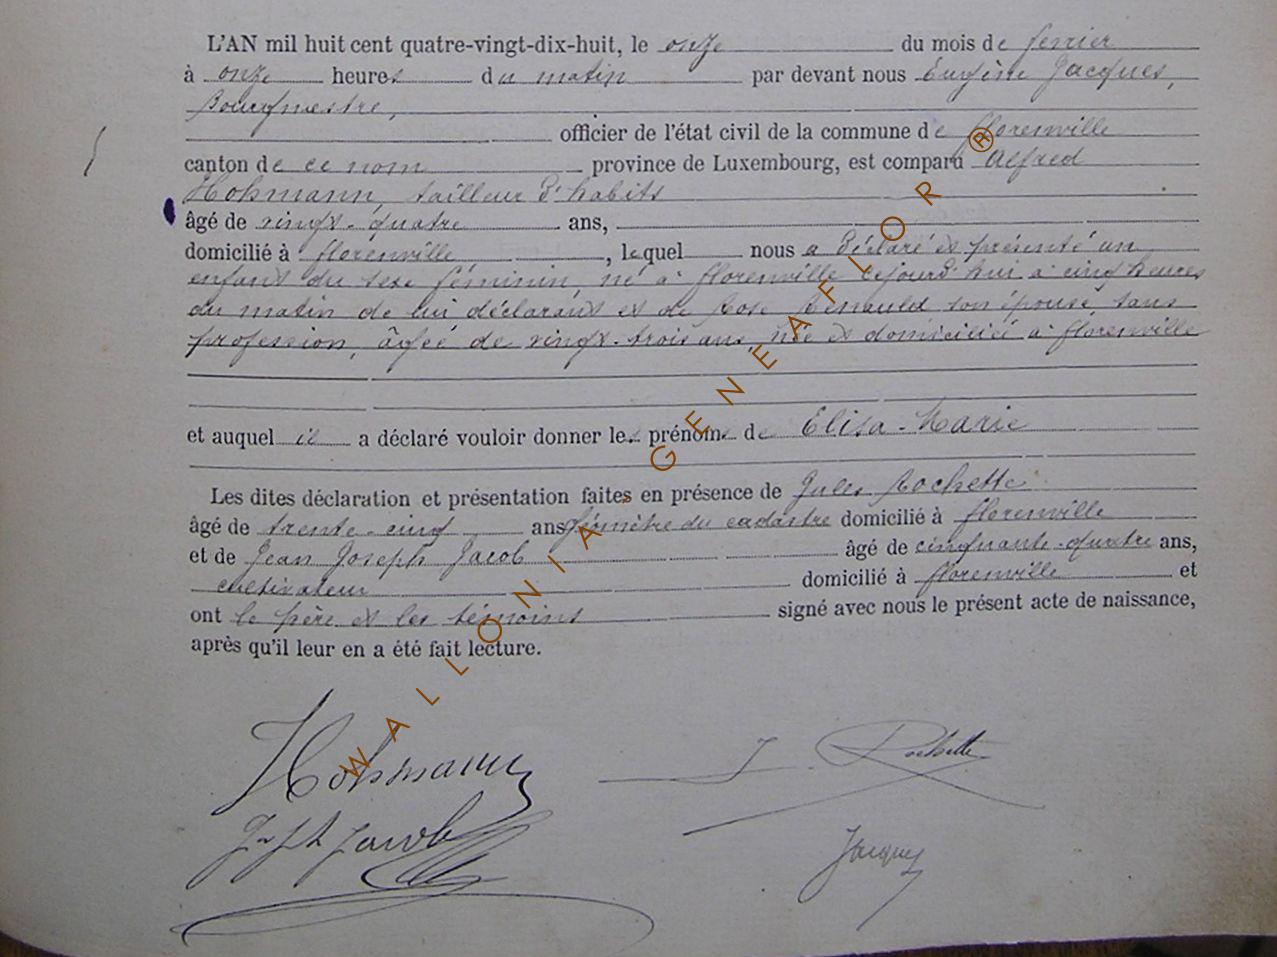 L'AN mil huit cent quatre-vingt-dix-huit, le onze du mois de fevrier
à onze heures du matin par devant nous Eugène Jacques,
Bourgmestre,
officier de l'état civil de la commune de florenville
canton de ce nom province de Luxembourg, est comparu Alfred
Hohmann, tailleur d'habits
âgé de vingt-quatre ans,
domicilié à florenville, lequel nous a déclaré et présenté un
enfant du sexe féminin, né à florenville cejourd'hui à cinq heures
du matin de lui déclarant et de Rose Renauld son épouse, sans
profession, âgée de vingt-trois ans, née et domiciliée à florenville
et auquel il a déclaré vouloir donner les prénoms de Elisa-Marie
Les dites déclaration et présentation faites en présence de Jules Rochette
âgé de trente-cinq ans géomètre du cadastre domicilié à florenville
et de Jean Joseph Jacob âgé de cinquante-quatre ans,
cultivateur domicilié à florenville et
ont le père et les témoins signé avec nous le présent acte de naissance,
après qu'il leur en a été fait lecture.
Hohmann J Rochette
Jph Jacob Jacques
WALLONIA GENEAFLOR ®